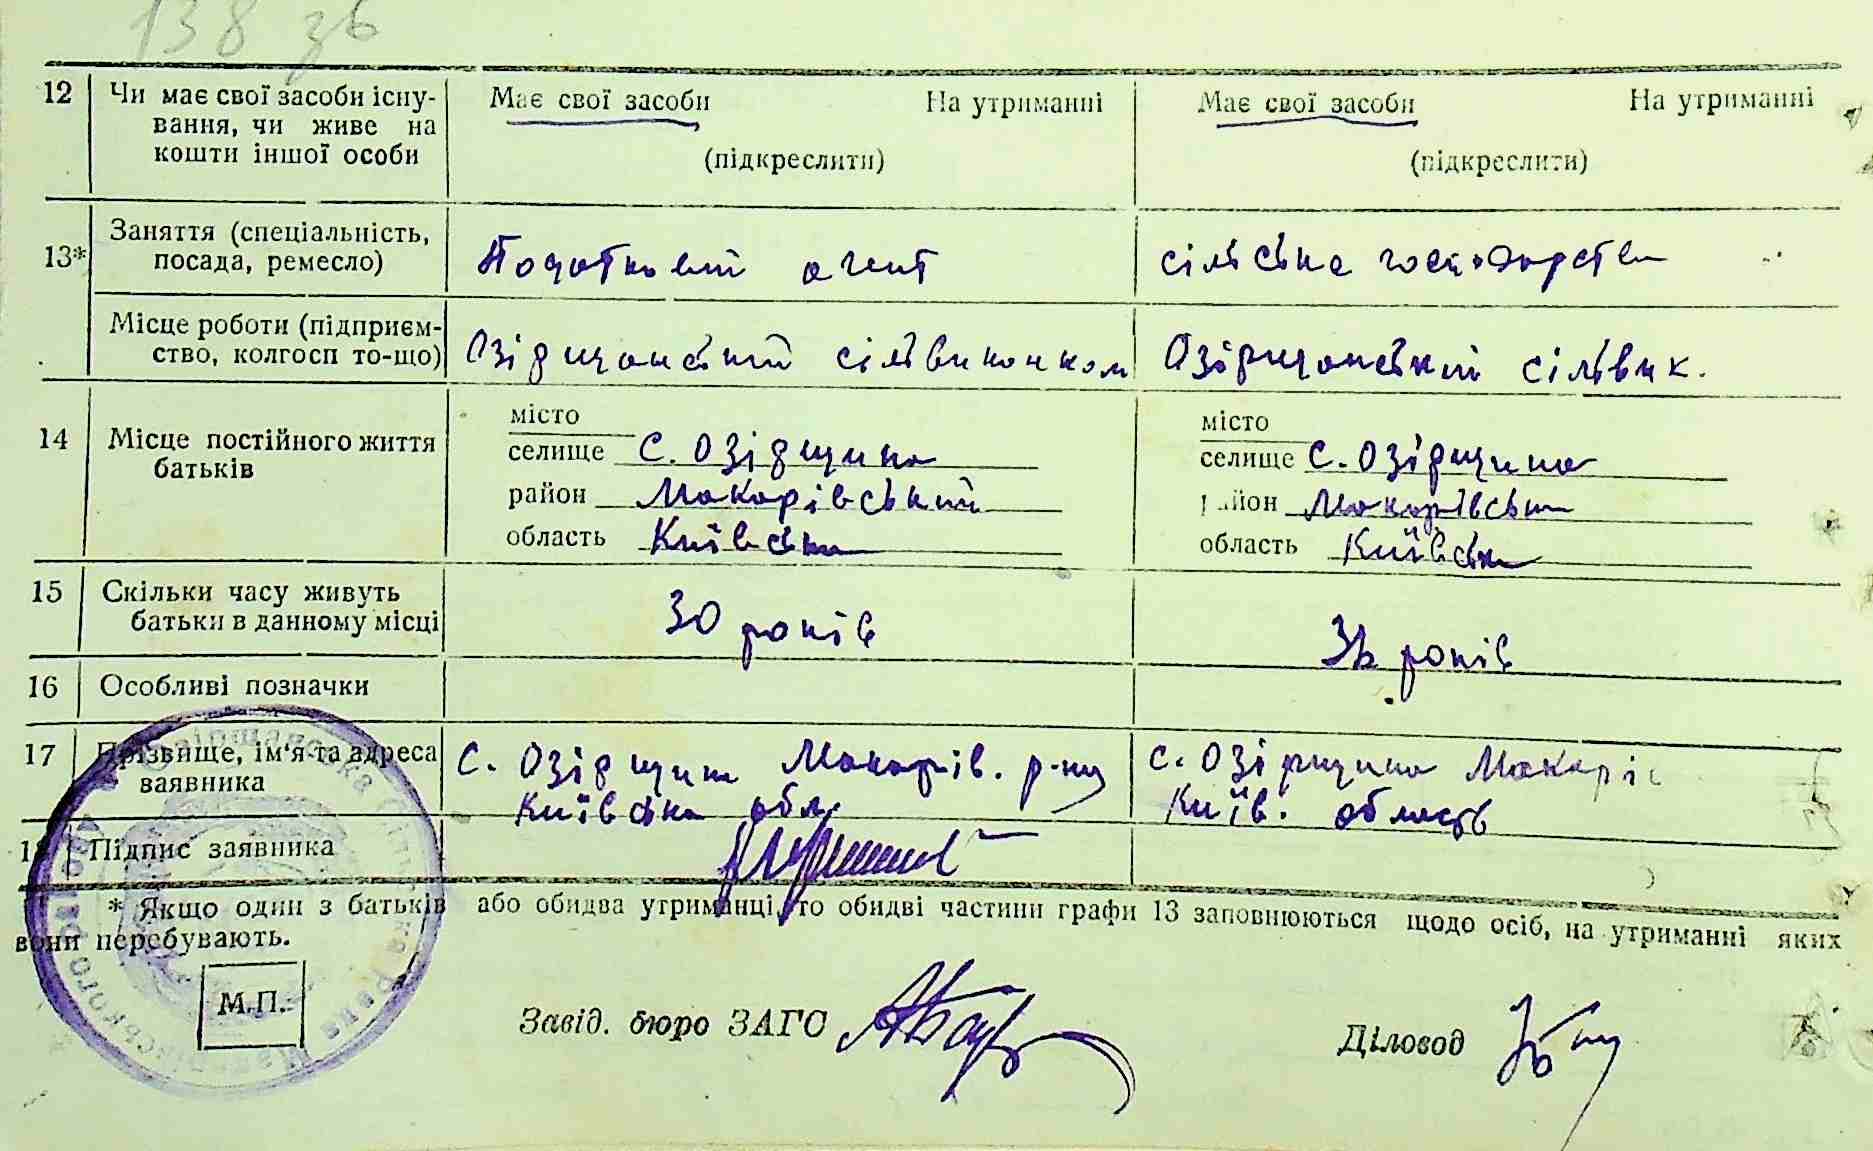 138 зв
12 Чи має свої засоби існу-
вання, чи живе на
кошти іншої особи
Має свої засоби На утриманні
(підкреслити)
Має свої засоби На утриманні
(підкреслити)
13* Заняття (спеціальність,
посада, ремесло)
Податковий агент
сільське господарство
Місце роботи (підприєм-
ство, колгосп то-що)
Озірщанський сільвиконком
Озірщанський сільвик.
14 Місце постійного життя
батьків
місто
селище с. Озірщина
район Макарівський
область Київська
місто
селище с. Озірщина
район Макарівськ
область Київськ
15 Скільки часу живуть
батьки в данному місці
30 років
років
16 Особливі позначки
17 Прізвище, ім'я та адреса
заявника
с. Озірщина Макарів. р-ну
Київська обл.
с. Озірщина Макарів
Київ. область
18 Підпис заявника
* Якщо один з батьків або обидва утриманці, то обидві частини графи 13 заповнюються щодо осіб, на утриманні яких
вони перебувають.
М.П.
Завід. бюро ЗАГС
Діловод